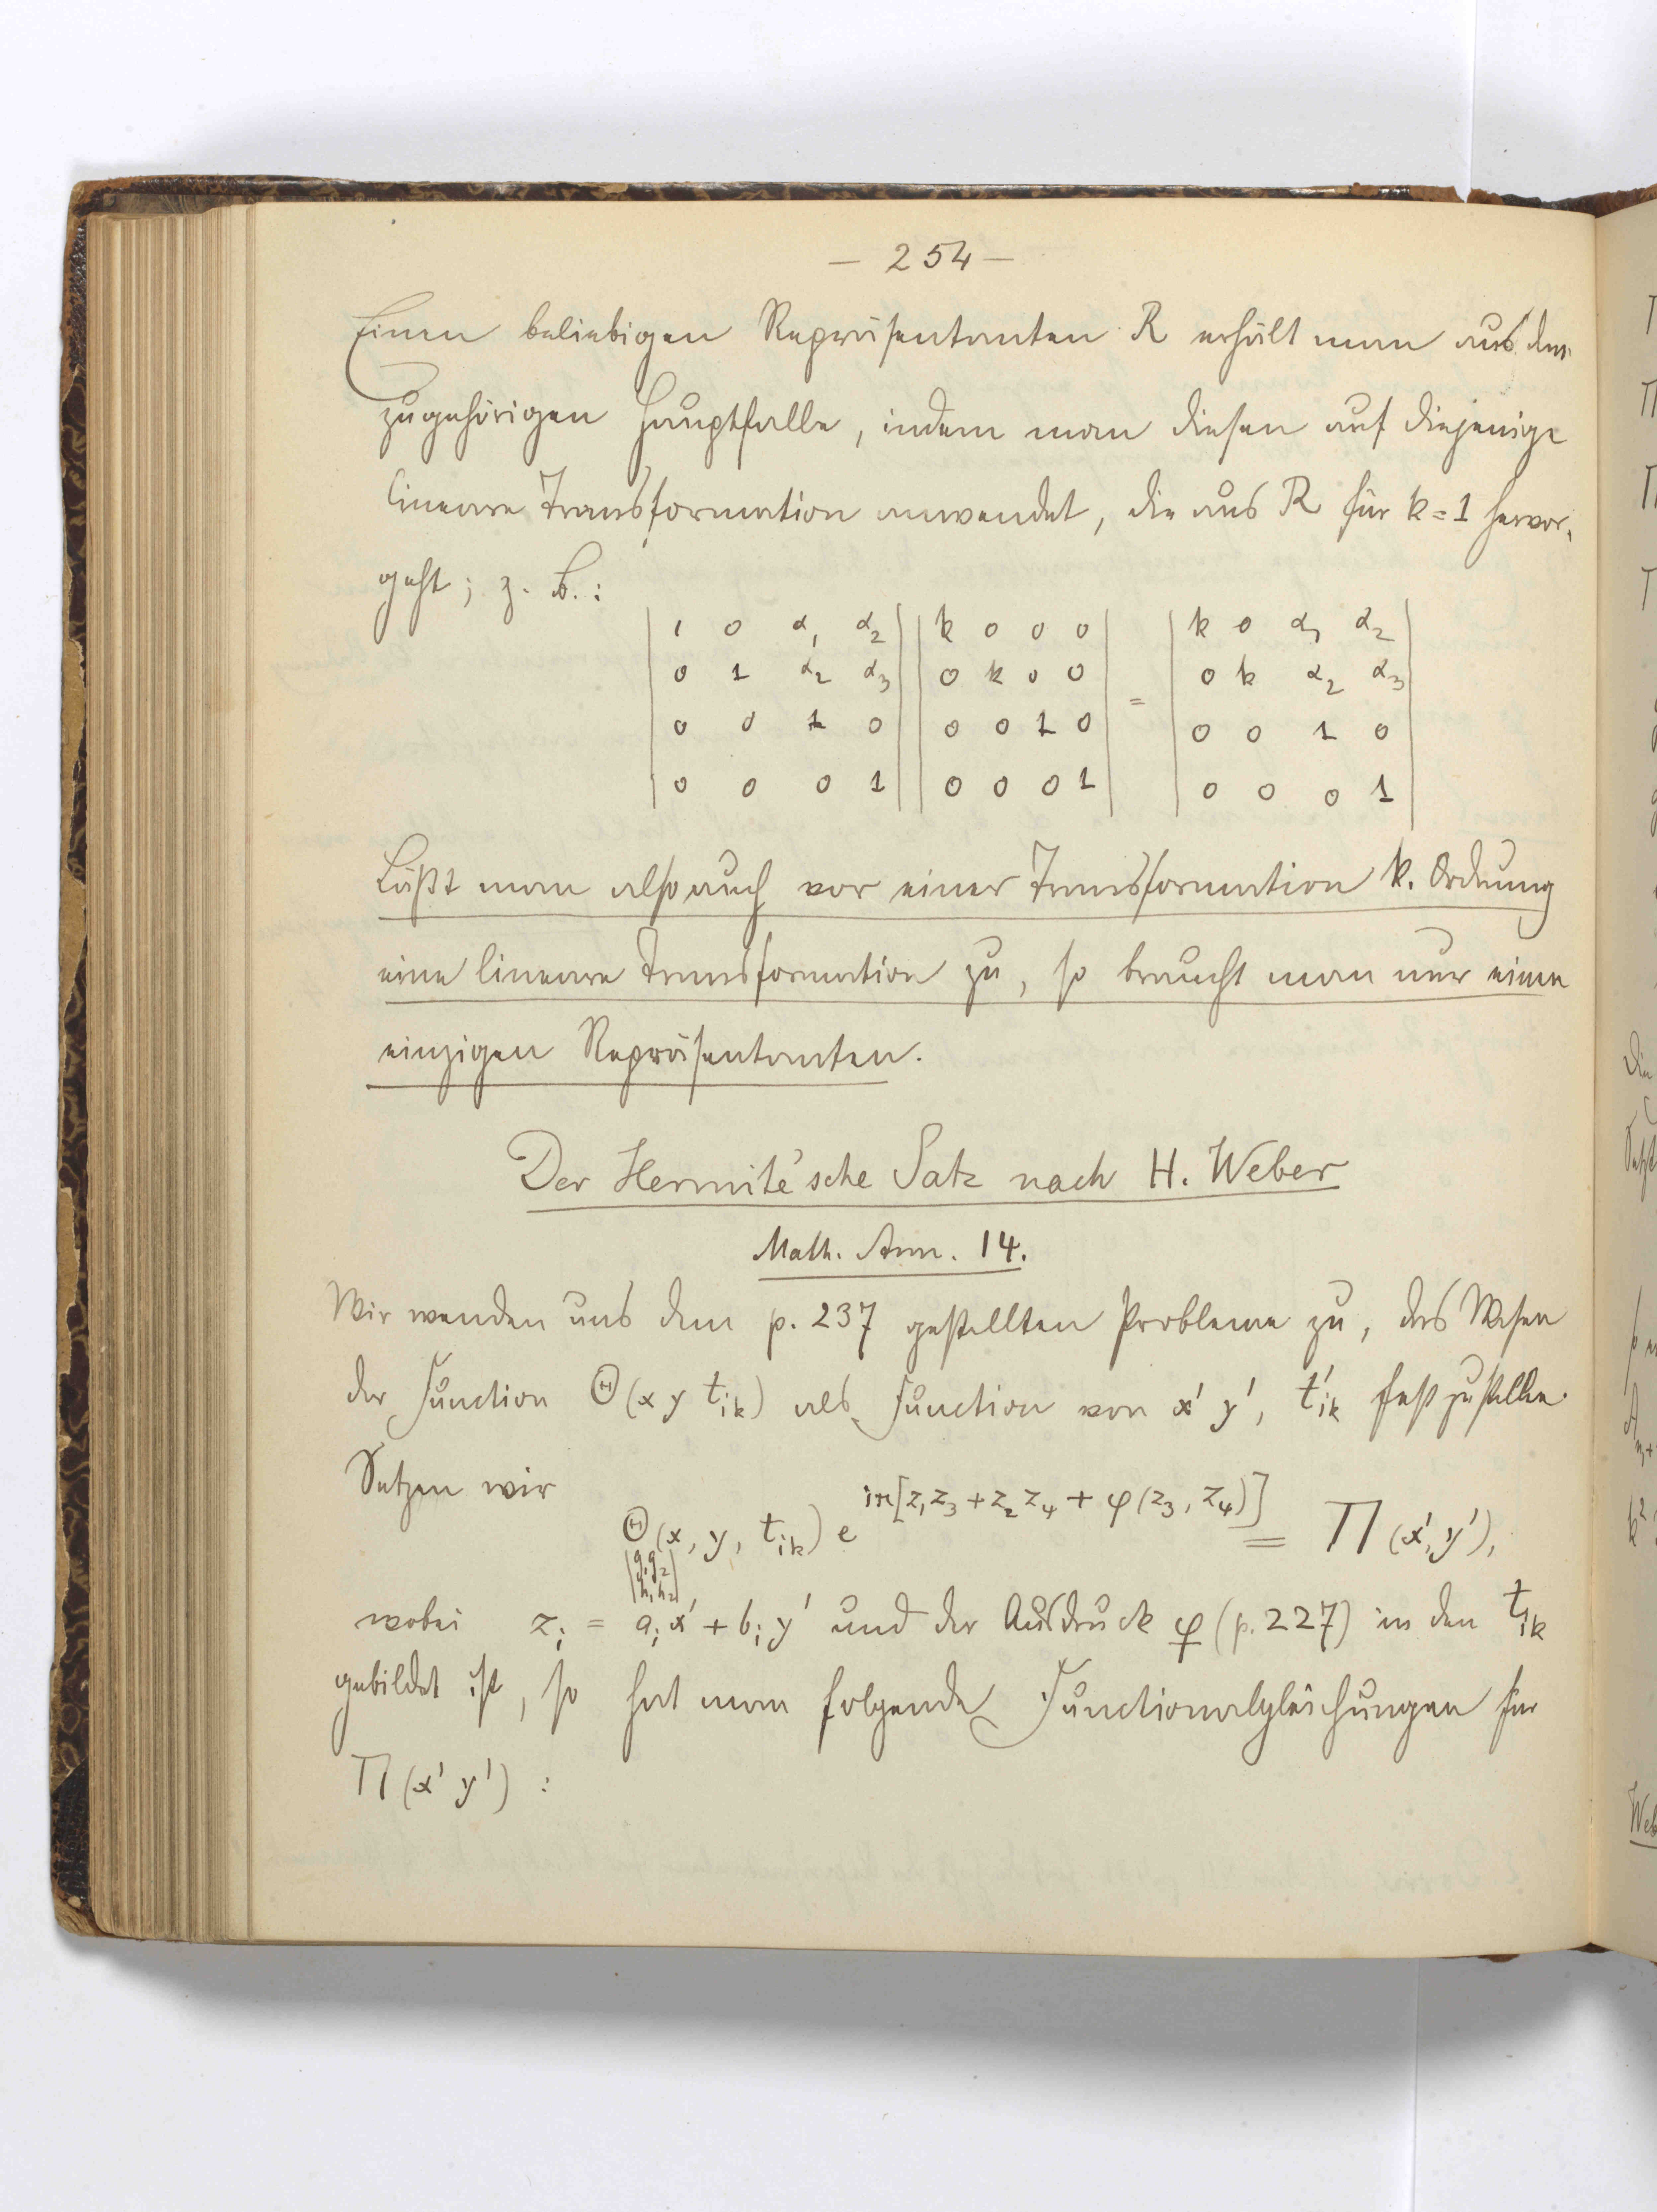 — 254 —
Einen beliebigen Repräsentanten R erhält man aus dem
zugehörigen Hauptfalle, indem man diesen auf diejenige
lineare Transformation anwendet, die aus R für k=1 hervor-
geht; z. B.:
| 1 0 α₁ α₂ | | k 0 0 0 | | k 0 α₁ α₂ |
| 0 1 α₂ α₃ | | 0 k 0 0 | = | 0 k α₂ α₃ |
| 0 0 1 0 | | 0 0 1 0 | | 0 0 1 0 |
| 0 0 0 1 | | 0 0 0 1 | | 0 0 0 1 |
Läßt man also auch vor einer Transformation k. Ordnung
eine lineare Transformation zu, so braucht man nur einen
einzigen Repräsentanten.
Der Hermite'sche Satz nach H. Weber
Math. Ann. 14.
Wir wenden uns dem p. 237 gestellten Probleme zu, das Wesen
der Function Θ(x y t_ik) als Function von x' y', t'_ik festzustellen.
Setzen wir
Θ(x, y, t_ik) e^{iπ[z₁z₃ + z₂z₄ + φ(z₃, z₄)]} = Π(x', y'),
|g₁g₂|
|h₁h₂|
wobei z_i = a_i x' + b_i y' und der Ausdruck φ (p. 227) in den t_ik
gebildet ist, so hat man folgende Functionalgleichungen für
Π(x' y') :